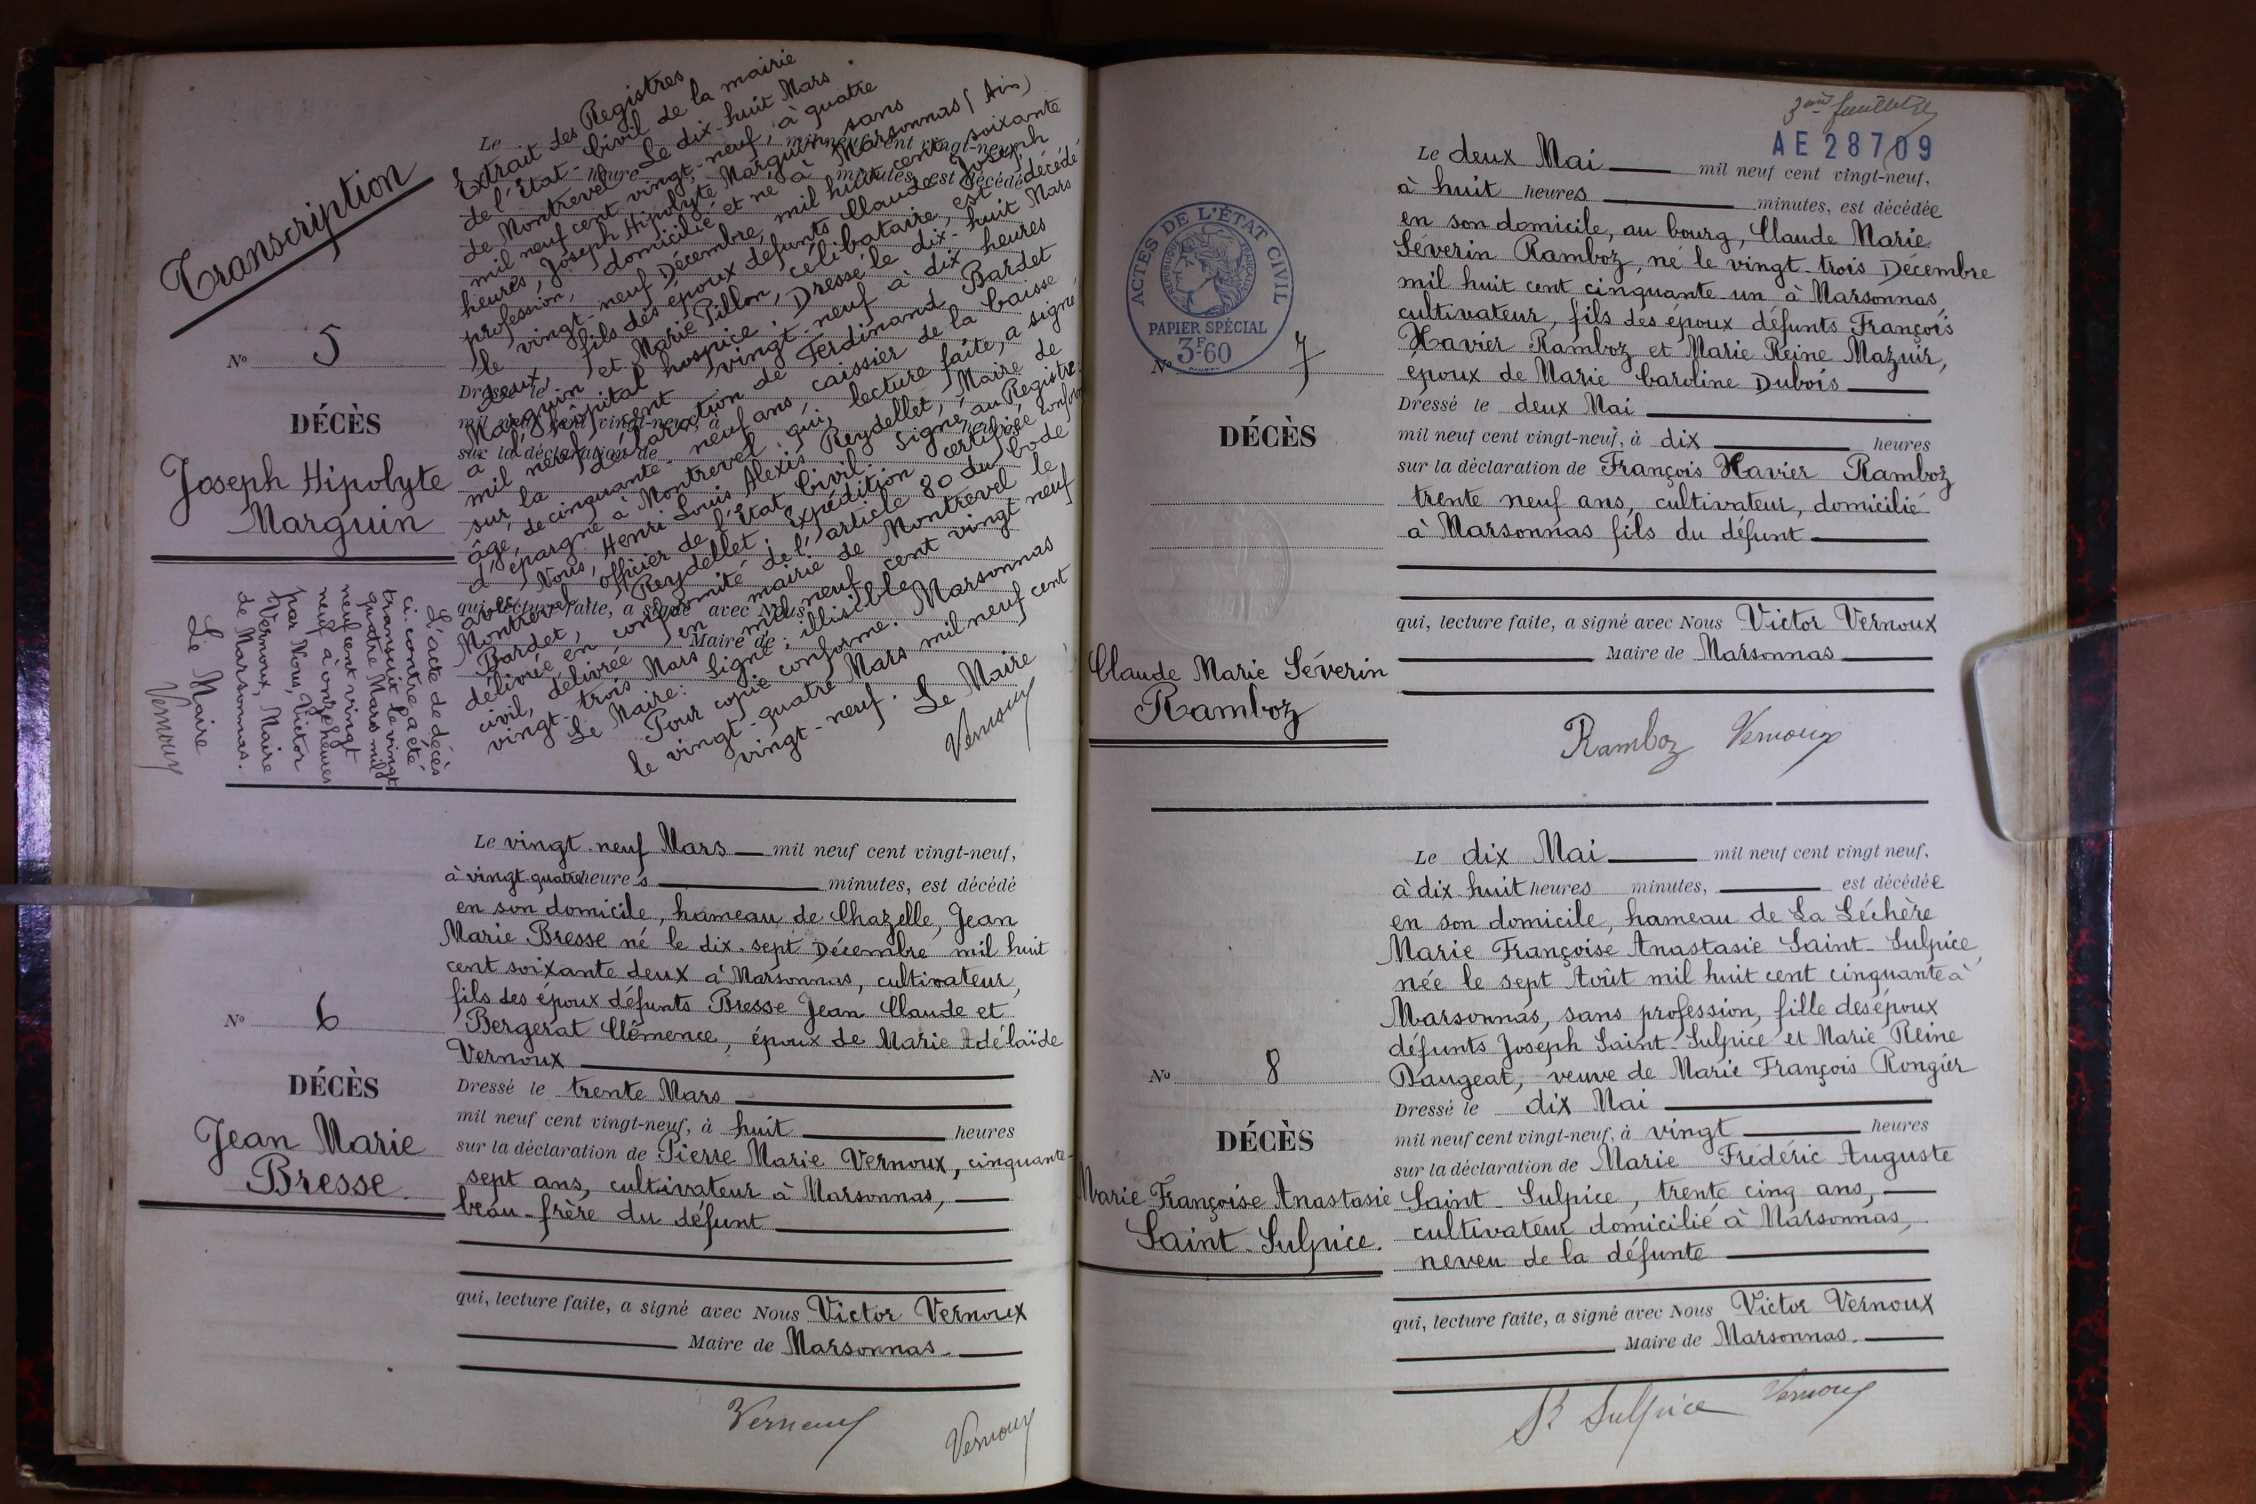 Transcription
N° 5
DÉCÈS
Joseph Hipolyte
Marguin
Extrait des Registres
de l'État-Civil de la mairie
de Montrevel. Le dix-huit Mars
mil neuf cent vingt-neuf, à quatre
heures, Joseph Hipolyte Marguin, sans
profession, domicilié et né à Marsonnas (Ain)
le vingt-neuf Décembre, mil huit cent soixante
deux, fils des époux défunts Claude Joseph
Marguin et Marie Pillon, célibataire, est décédé
à l'hôpital hospice. Dressé le dix-huit Mars
mil neuf cent vingt-neuf à dix heures
sur la déclaration de Ferdinand Bardet
âgé de cinquante-neuf ans, caissier de la Caisse
d'épargne à Montrevel qui, lecture faite, a signé
avec Nous, Henri Louis Alexis Reydellet, Maire de
Montrevel, officier de l'État Civil. Signé au Registre:
Bardet, Reydellet; Expédition certifiée conforme
délivrée en conformité de l'article 80 du Code
civil, délivrée en mairie de Montrevel le
vingt-trois Mars mil neuf cent vingt neuf
Le Maire: Signé: illisible
Pour copie conforme. Marsonnas
le vingt-quatre Mars mil neuf cent
vingt-neuf. Le Maire
Vernoux
Le mil neuf cent vingt-neuf,
heure minutes, est décédé
Dressé le
mil neuf cent vingt-neuf, à heures
sur la déclaration de
qui, lecture faite, a signé avec Nous
Maire de
L'acte de décès
ci-contre a été
transcrit le vingt
quatre Mars mil
neuf cent vingt
neuf à onze heures
par Nous, Victor
Vernoux, Maire
de Marsonnas.
Le Maire
Vernoux
N° 6
DÉCÈS
Jean Marie
Bresse.
Le vingt-neuf Mars mil neuf cent vingt-neuf,
à vingt quatre heures minutes, est décédé
en son domicile, hameau de Chazelle, Jean
Marie Bresse né le dix-sept Décembre mil huit
cent soixante deux à Marsonnas, cultivateur,
fils des époux défunts Bresse Jean Claude et
Bergerat Clémence, époux de Marie Adélaïde
Vernoux
Dressé le trente Mars
mil neuf cent vingt-neuf, à huit heures
sur la déclaration de Pierre Marie Vernoux, cinquante-
sept ans, cultivateur à Marsonnas,
beau-frère du défunt
qui, lecture faite, a signé avec Nous Victor Vernoux
Maire de Marsonnas.
Vernoux Vernoux
3ème feuillet
AE 28709
ACTES DE L'ÉTAT CIVIL
RÉPUBLIQUE FRANÇAISE
PAPIER SPÉCIAL
3F.60
N° 7
DÉCÈS
Claude Marie Séverin
Ramboz
Le deux Mai mil neuf cent vingt-neuf,
à huit heures minutes, est décédée
en son domicile, au bourg, Claude Marie
Séverin Ramboz, né le vingt-trois Décembre
mil huit cent cinquante un à Marsonnas
cultivateur, fils des époux défunts François
Xavier Ramboz et Marie Reine Mazuir,
époux de Marie Caroline Dubois
Dressé le deux Mai
mil neuf cent vingt-neuf, à dix heures
sur la déclaration de François Xavier Ramboz
trente neuf ans, cultivateur, domicilié
à Marsonnas fils du défunt
qui, lecture faite, a signé avec Nous Victor Vernoux
Maire de Marsonnas
Ramboz Vernoux
N° 8
DÉCÈS
Marie Françoise Anastasie
Saint-Sulpice.
Le dix Mai mil neuf cent vingt neuf.
à dix-huit heures minutes, est décédée
en son domicile, hameau de La Léchère
Marie Françoise Anastasie Saint-Sulpice,
née le sept Août mil huit cent cinquante à
Marsonnas, sans profession, fille des époux
défunts Joseph Saint-Sulpice et Marie Reine
Daugeat, veuve de Marie François Rongier
Dressé le dix Mai
mil neuf cent vingt-neuf, à vingt heures
sur la déclaration de Marie Frédéric Auguste
Saint-Sulpice, trente cinq ans,
cultivateur domicilié à Marsonnas,
neveu de la défunte
qui, lecture faite, a signé avec Nous Victor Vernoux
Maire de Marsonnas.
St Sulpice Vernoux